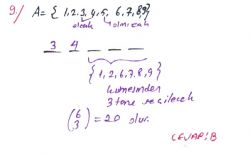 9/ A= { 1,2,3,4,5, 6,7,8,9}
olacak olmicak
3 4 _ _ _
{ 1, 2, 6, 7, 8, 9 }
kumesinden
3 tane seçilecek
(6 3) = 20 olur.
CEVAP: B